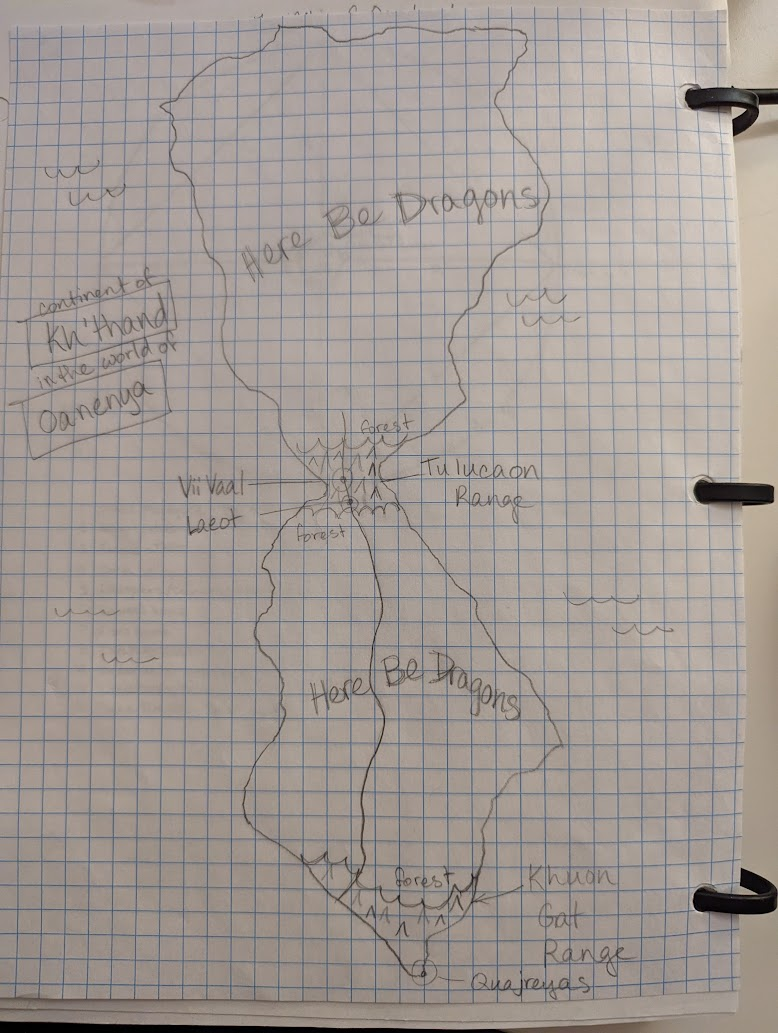 Here Be Dragons
continent of
Kh'thand
in the world of
Oanenya
forest
Vii Vaal
Tulucaon
Range
Laeot
forest
Here Be Dragons
forest
Khuon
Gat
Range
Quajreyas